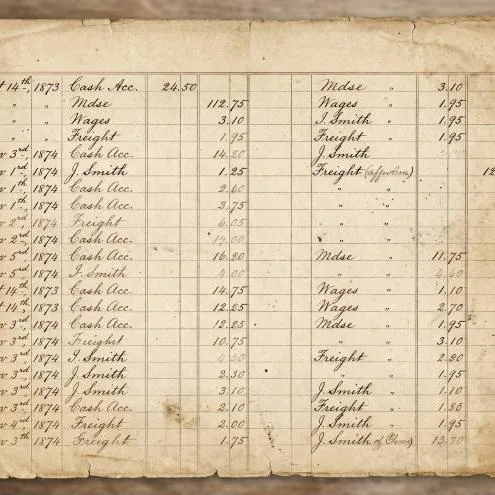 t 14th, 1873 Cash Acc. 24.50 Mdse " 3.10
" " Mdse 112.75 Wages " 1.95
" " Wages 3.10 I. Smith " 1.95
" " Freight 1.95 Freight " 1.95
v 3rd, 1874 Cash Acc. 14.20 J. Smith
v 1rd, 1874 J. Smith 1.25 Freight 12
v 1th, 1874 Cash Acc. 2.60 " "
v 1th, 1874 Cash Acc. 3.75 " "
v 2rd, 1874 Freight 6.05 " "
v 2rd, 1874 Cash Acc. 19.00 " "
v 5rd, 1874 Cash Acc. 16.20 Mdse " 11.75
v 5rd, 1874 I. Smith 4.00 " " 4.60
t 14th, 1873 Cash Acc. 14.75 Wages " 1.10
t 14th, 1873 Cash Acc. 12.25 Wages " 2.70
v 3rd, 1874 Cash Acc. 12.25 Mdse " 1.95
v 3rd, 1874 Freight 10.75 " " 3.10
v 3rd, 1874 I. Smith 4.30 Freight " 2.20
v 3rd, 1874 J. Smith 2.30 " " 1.95
v 3rd, 1874 J. Smith 3.10 J. Smith " 1.10
v 3rd, 1874 Cash Acc. 2.10 Freight " 1.30
v 4rd, 1874 Freight 2.00 J. Smith " 1.95
v 3th, 1874 Freight 1.75 J. Smith 13.70